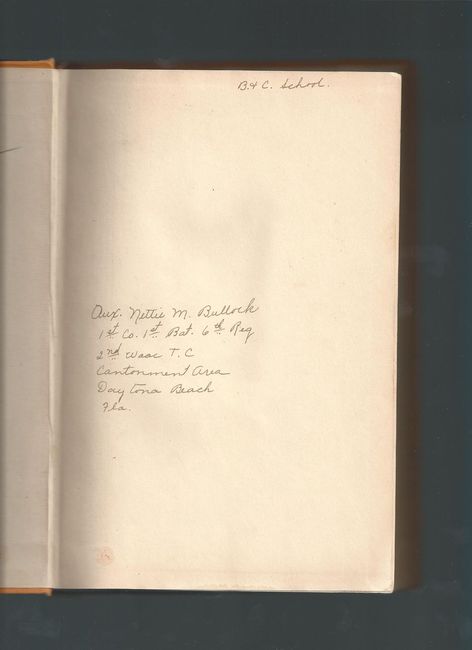 B. & C. School.
Aux. Nettie M. Bullock
1st Co. 1st Bat. 6th Reg
2nd Waac T. C
Cantonment Area
Daytona Beach
Fla.